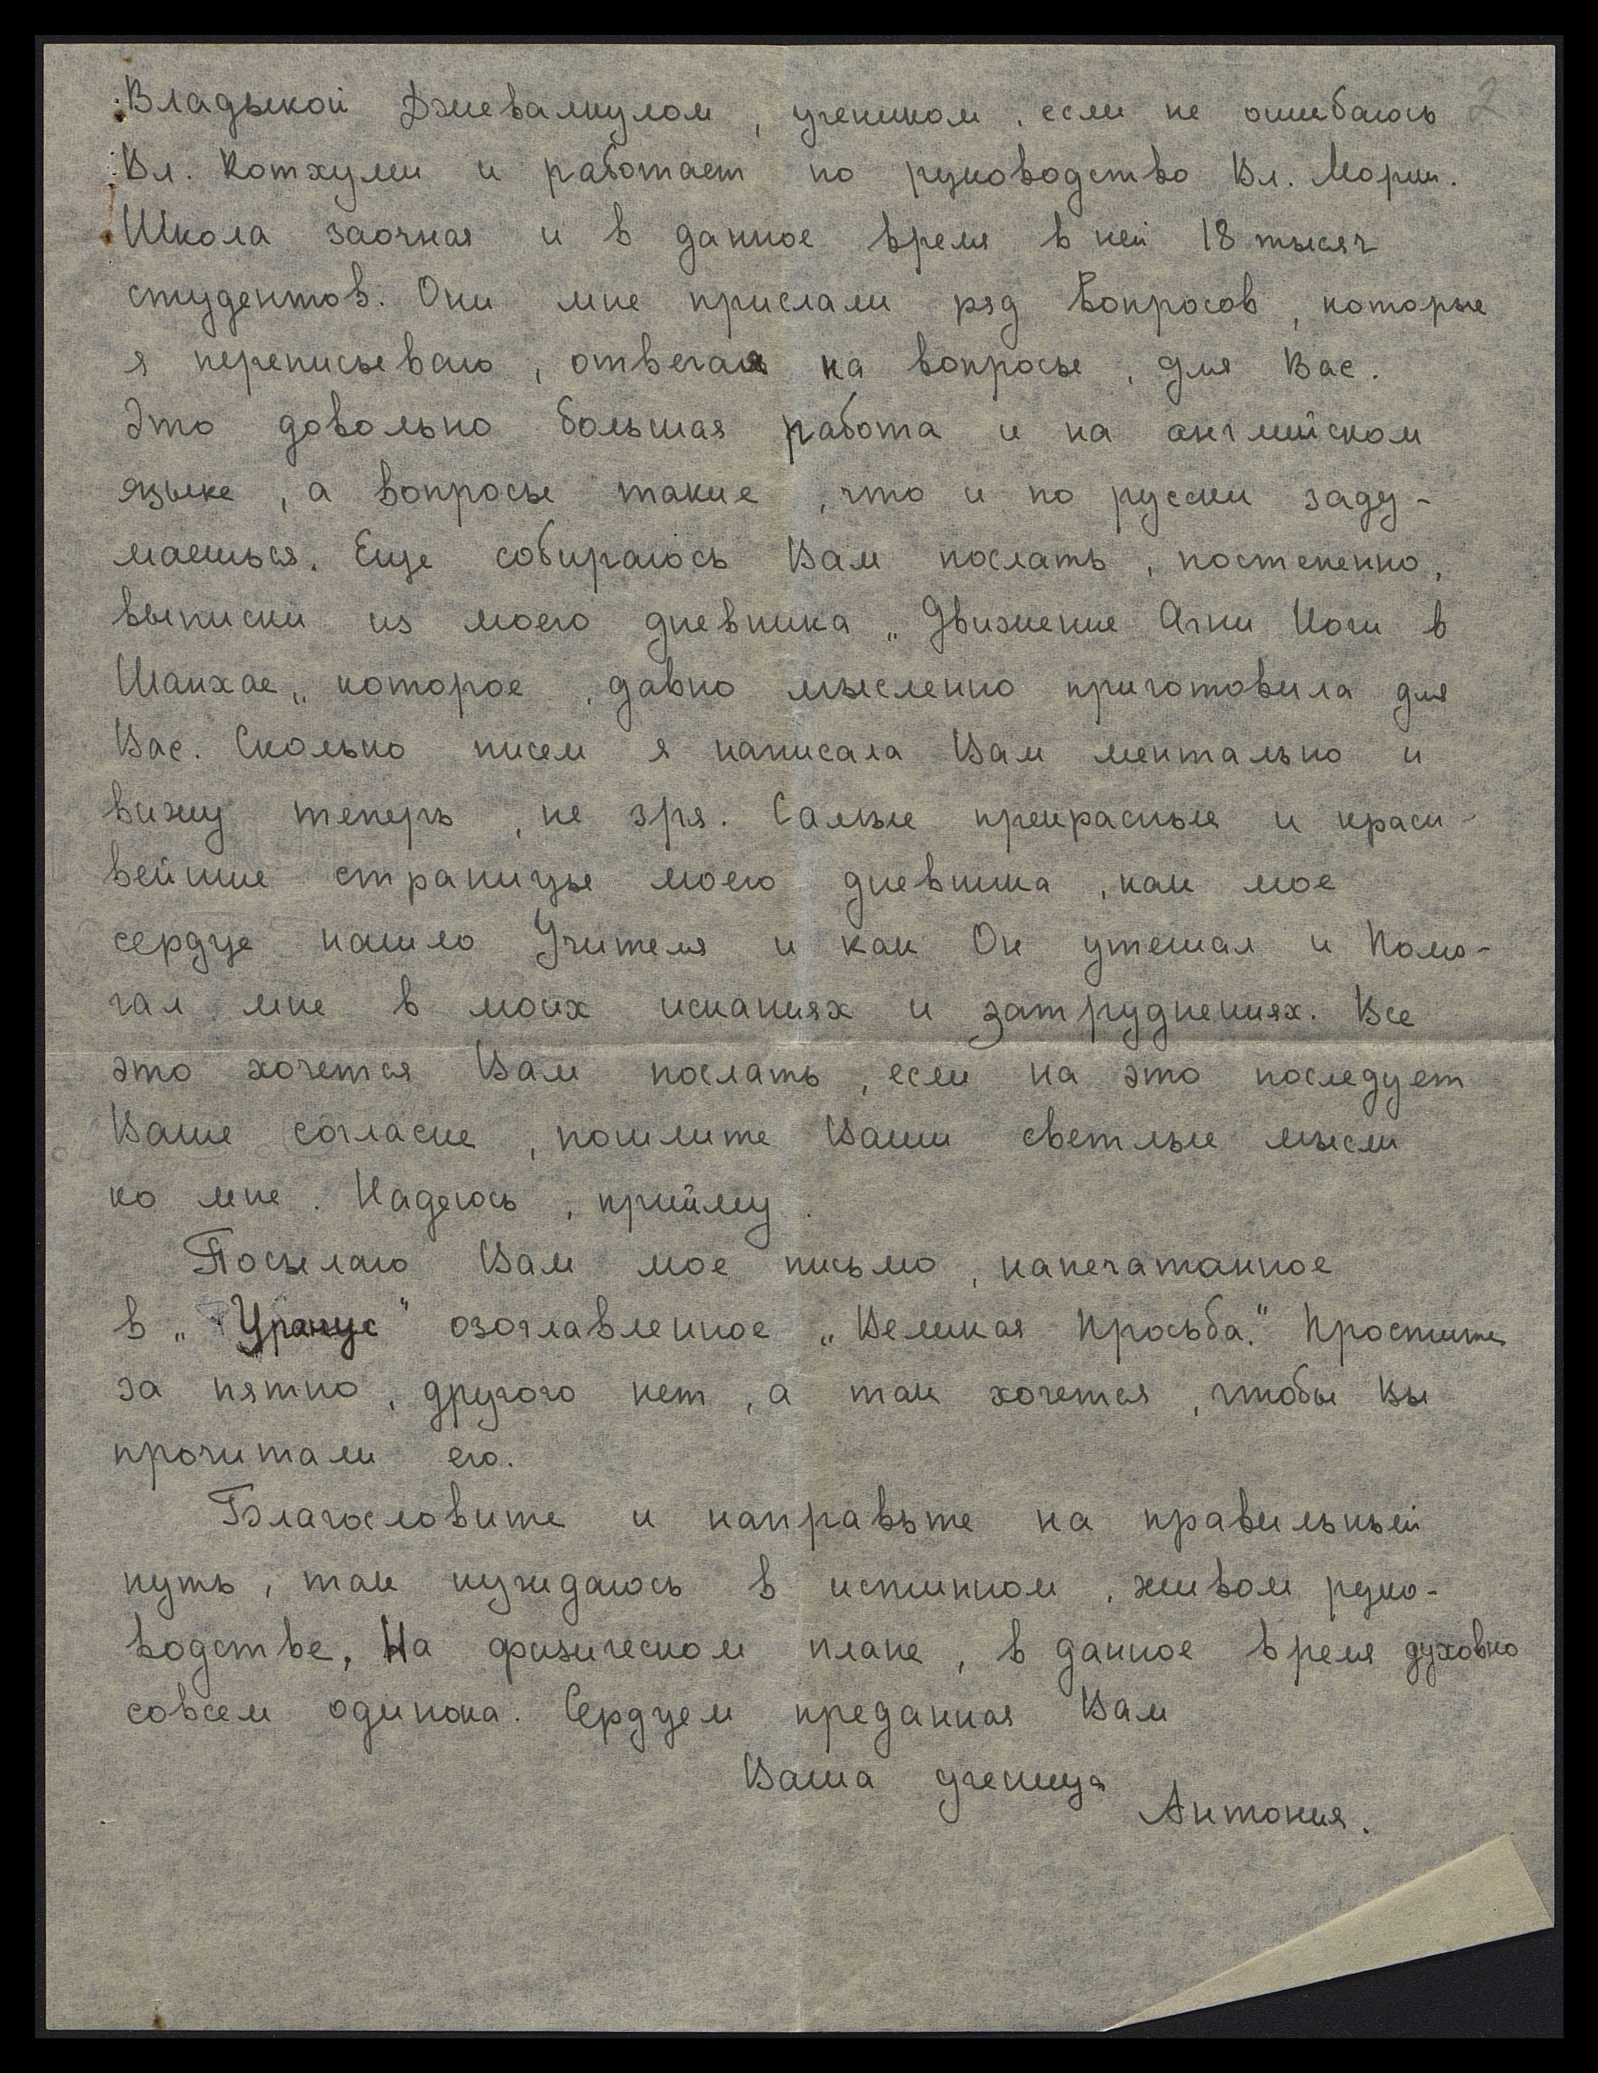 Владыкой Джевалкулом, учеником, если не ошибаюсь 2
Вл. Котхуми и работает по руководство Вл. Мории.
Школа заочная и в данное время в ней 18 тысяч
студентов. Они мне прислали ряд вопросов, которые
я переписываю, отвечая на вопросы, для Вас.
Это довольно большая работа и на английском
языке, а вопросы такие, что и по русски заду-
маешься. Еще собираюсь Вам послать, постепенно,
выписки из моего дневника „Движение Агни Йоги в
Шанхае„ которое, давно мысленно приготовила для
Вас. Сколько писем я написала Вам ментально и
вижу теперь, не зря. Самые прекрасные и краси-
вейшие страницы моего дневника, как мое
сердце нашло Учителя и как Он утешал и Помо-
гал мне в моих исканиях и затруднениях. Все
это хочется Вам послать, если на это последует
Ваше согласие, пошлите Ваши светлые мысли
ко мне. Надеюсь, прийму.
Посылаю Вам мое письмо, напечатанное
в „Уранус" озоглавленное „Великая Просьба." Простите
за пятно, другого нет, а так хочется, чтобы Вы
прочитали его.
Благословите и направьте на правильный
путь, так нуждаюсь в истинном, живом руко-
водстве, На физическом плане, в данное время духовно
совсем одинока. Сердцем преданная Вам
Ваша ученица
Антония.